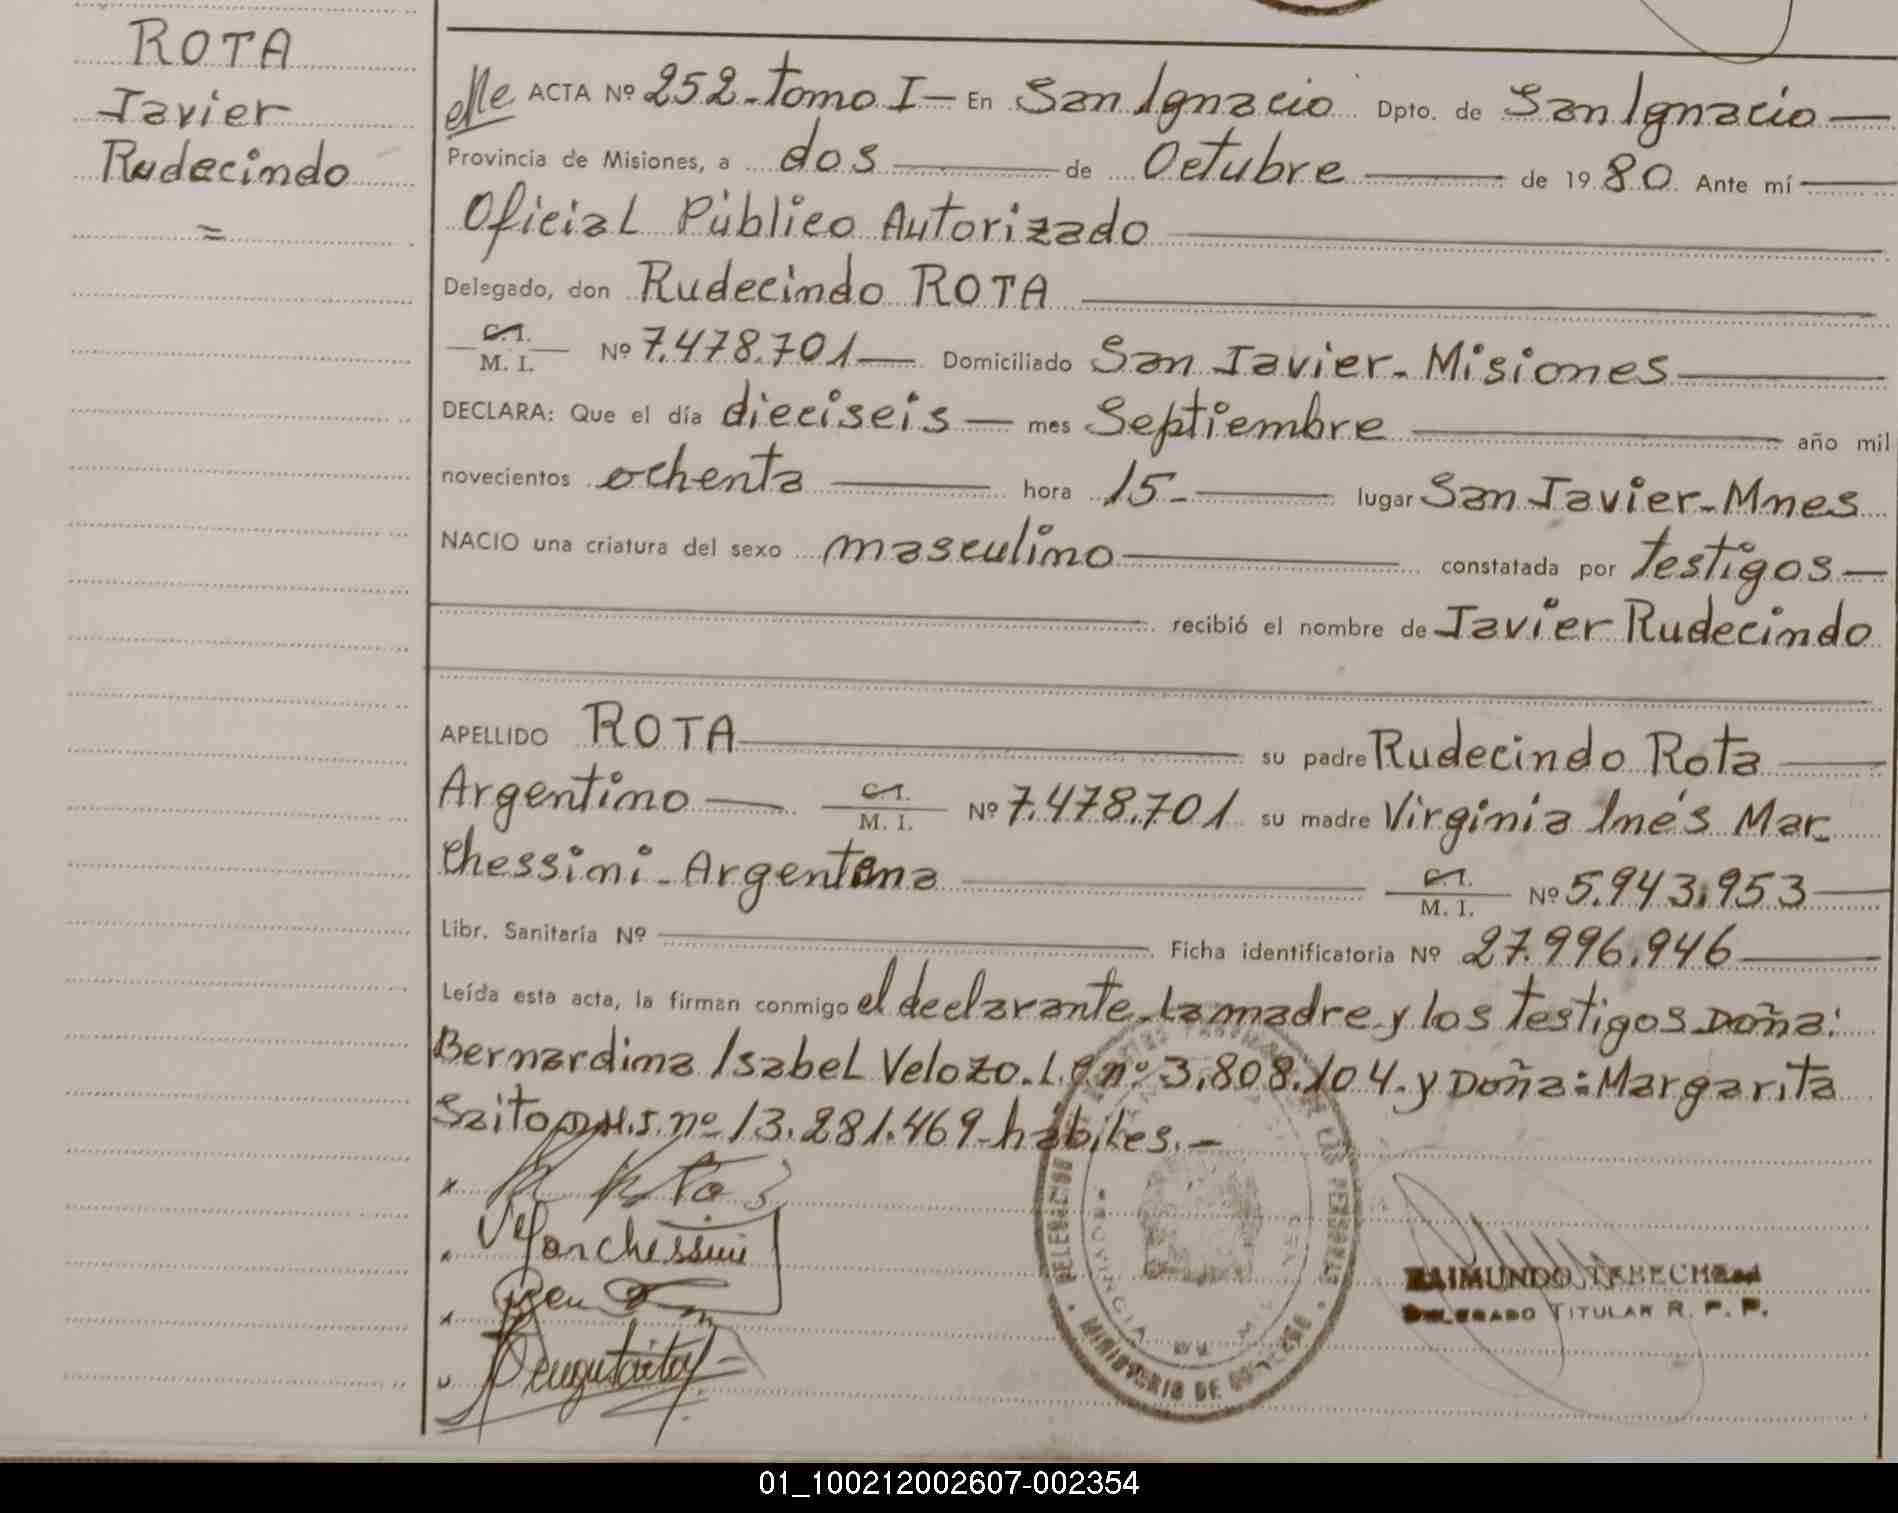 ROTA
Javier
Rudecindo
=
ACTA Nº 252-tomo I — En San Ignacio Dpto. de San Ignacio —
Provincia de Misiones, a dos de Octubre de 1980. Ante mí
Oficial Público Autorizado
Delegado, don Rudecindo ROTA
C.I.
M. I. Nº 7.478.701 — Domiciliado San Javier - Misiones
DECLARA: Que el día dieciseis — mes Septiembre año mil
novecientos ochenta hora 15- lugar San Javier - Mnes
NACIO una criatura del sexo masculino constatada por testigos —
recibió el nombre de Javier Rudecindo
APELLIDO ROTA su padre Rudecindo Rota
Argentino — C.I.
M. I. Nº 7.478.701 su madre Virginia Inés Mar-
chessini - Argentina C.I.
M. I. Nº 5.943.953
Libr. Sanitaria Nº Ficha identificatoria Nº 27.996.946
Leída esta acta, la firman conmigo el declarante - La madre y los testigos Doña:
Bernardina Isabel Velozo. L.C nº 3.808.104. y Doña: Margarita
nº 13.281.469 - hábiles. —
Marchessini
DELEGACION
PROVINCIA
MINISTERIO DE GOBIERNO
RAIMUNDO
DELEGADO TITULAR R. P. P.
01_100212002607-002354